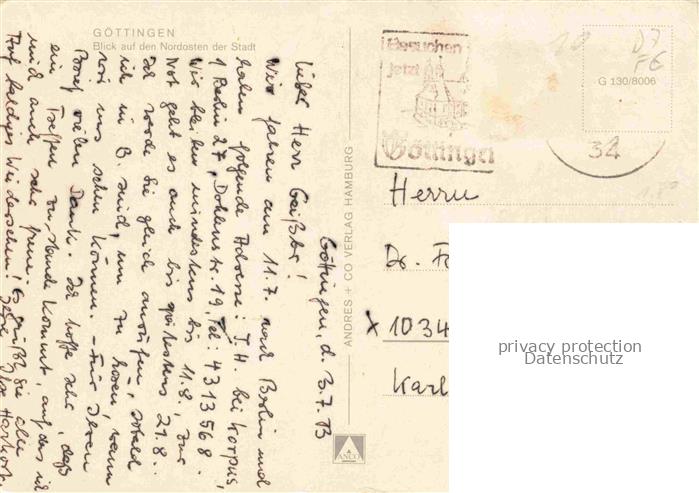 GÖTTINGEN
Blick auf den Nordosten der Stadt
Göttingen, d. 3.7.73
Lieber Herr Geißler!
Wir fahren am 11.7. nach Berlin und
haben folgende Adresse: J.H. bei Korpus,
1 Berlin 27, Dohlenstr. 19, Tel: 4313568.
Wir bleiben mindestens bis 11.8., zur
Not geht es auch bis spätestens 21.8..
Ich werde Sie gleich anrufen, sobald
ich in B. sind, um zu hören, wann
wir uns sehen können. – Für Ihren
Brief vielen Dank. Ich hoffe sehr, daß
ein Treffen zustande kommt, auf das ich
mich auch sehr freue.
Auf baldiges Wiedersehen! Es grüßt Sie
ANDRES + CO VERLAG HAMBURG
ANCO
Besuchen
jetzt
Göttingen
34
G 130/8006
D7
F6
Herrn
Dr. F
x 1034
Karl
privacy protection
Datenschutz